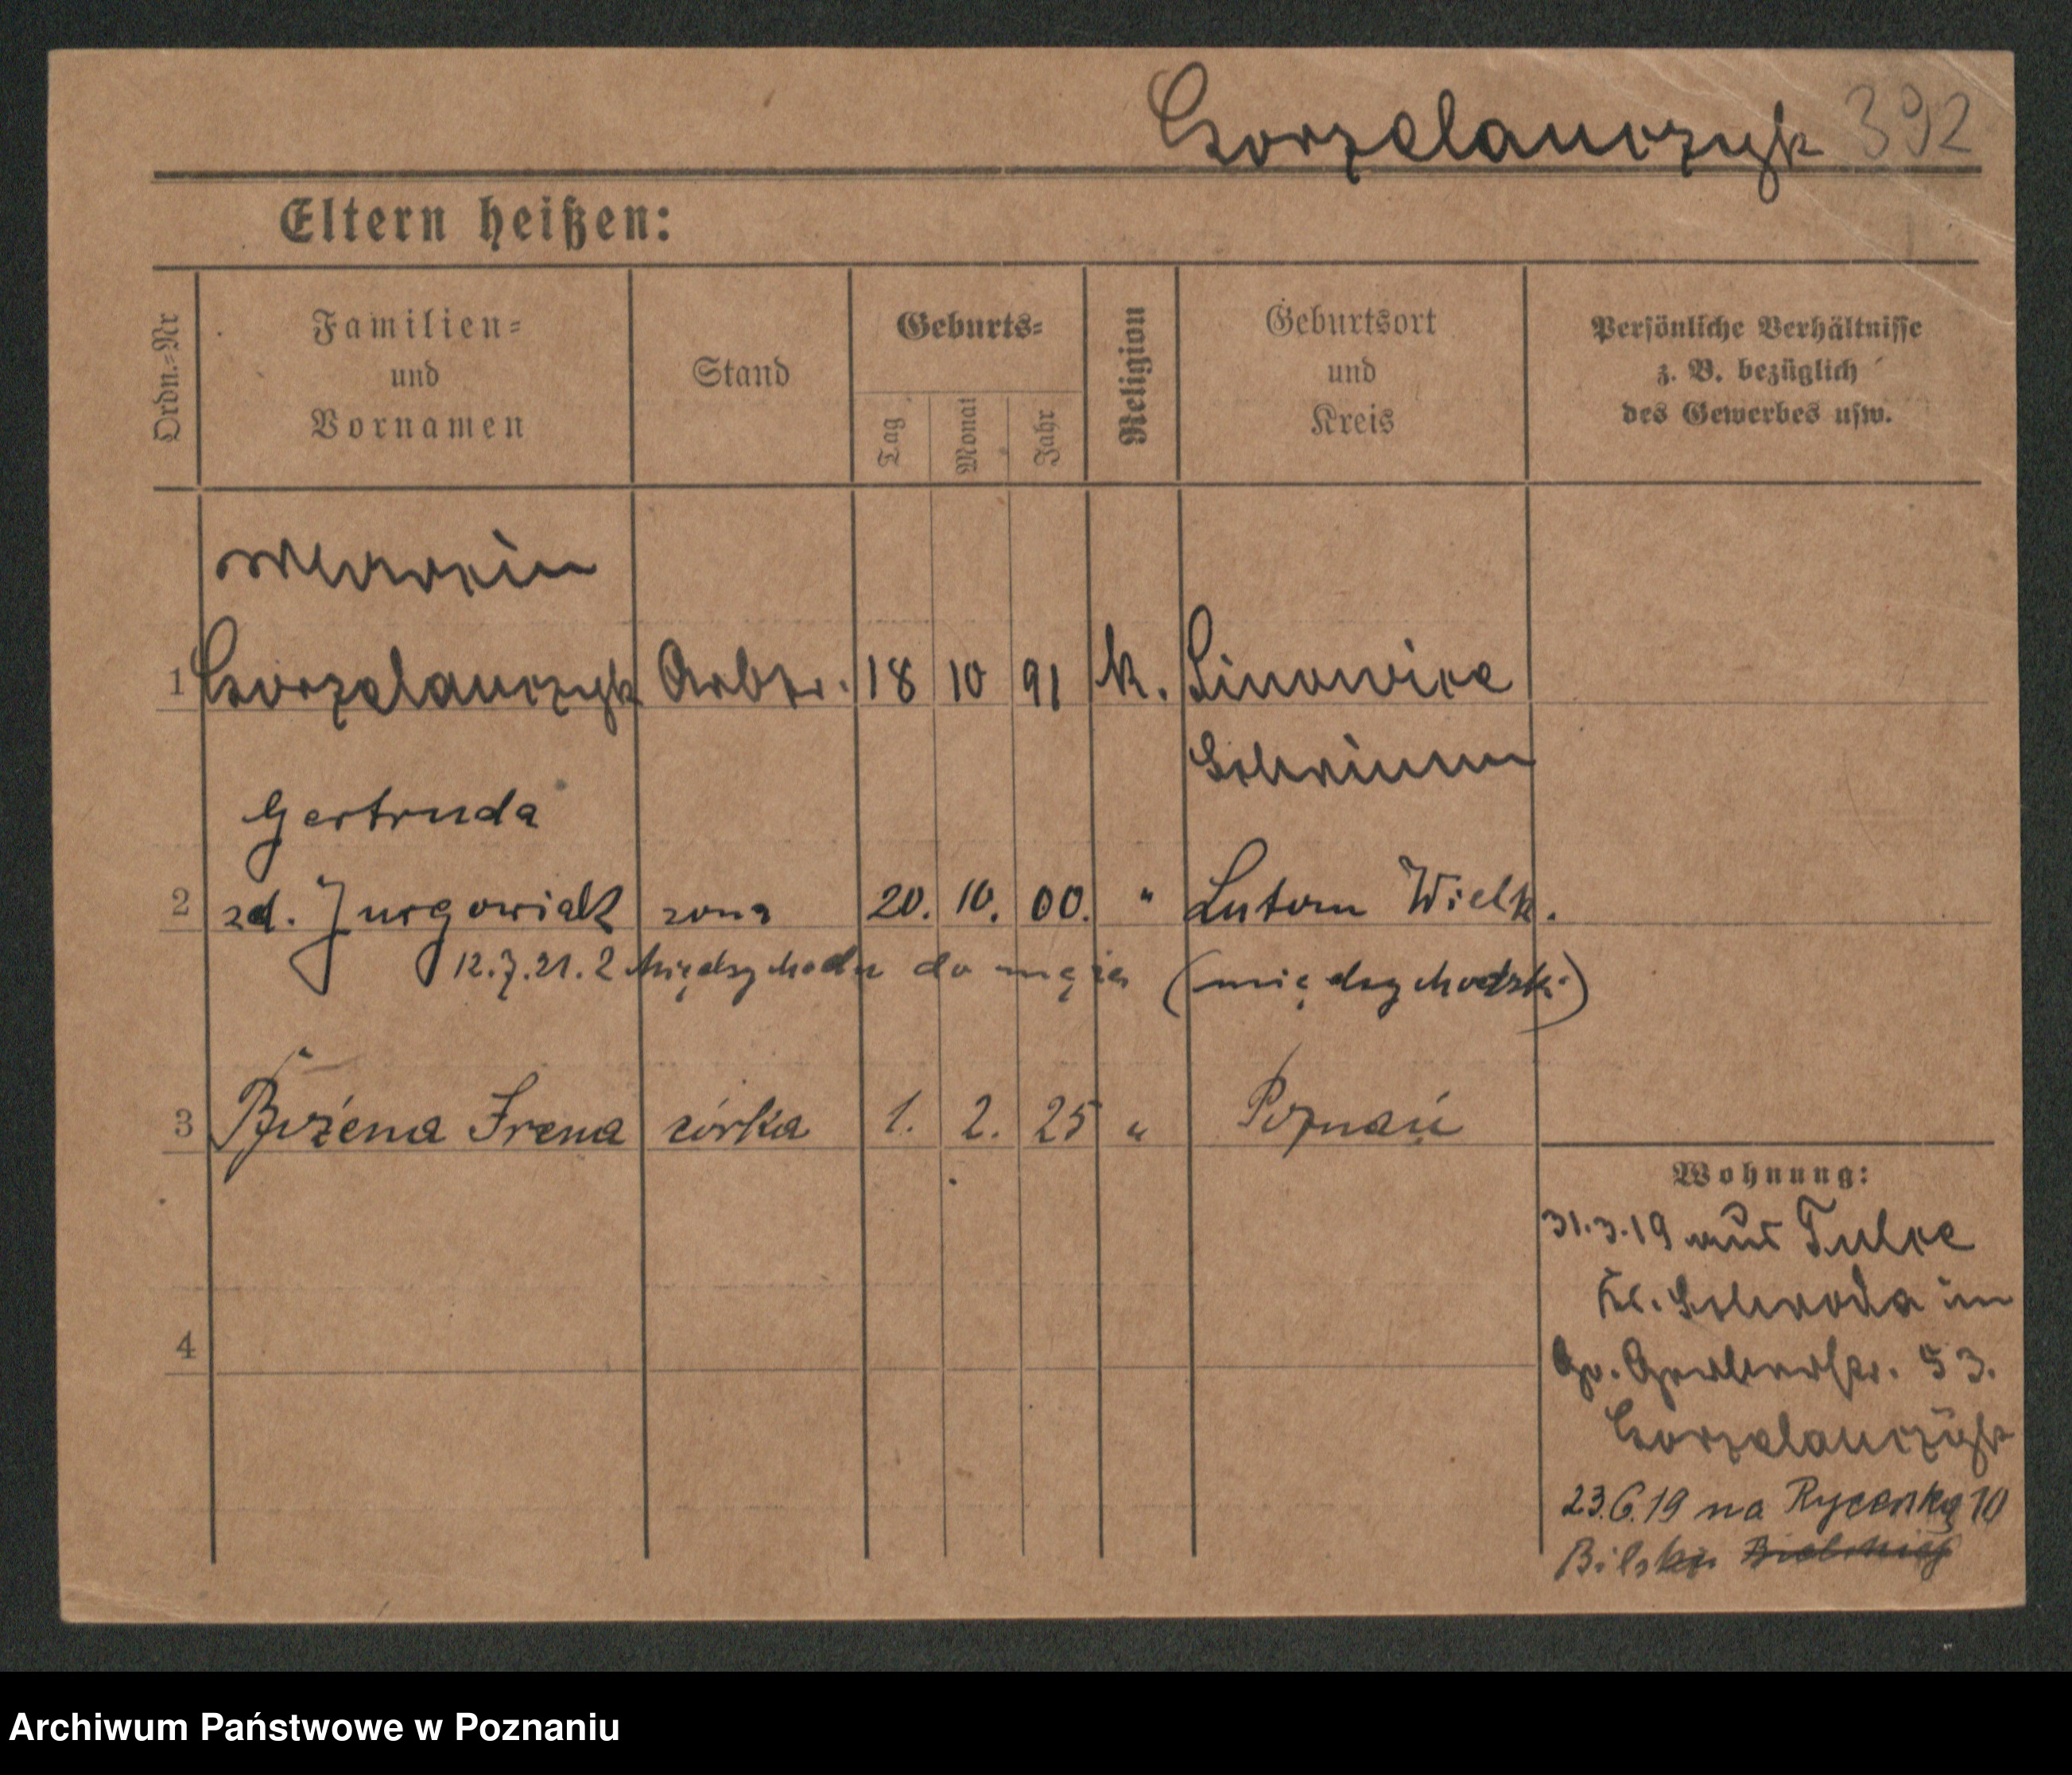 Gorzelanczyk 392
Eltern heißen:
Ordn.=Nr
Familien=
und
Vornamen
Stand
Geburts=
Tag
Monat
Jahr
Religion
Geburtsort
und
Kreis
Persönliche Verhältnisse
z. B. bezüglich
des Gewerbes usw.
Marcin
1 Gorzelanczyk Arbtr. 18 10 91 k. Sinowice
Schrimm
Gertruda
2 zd. Jurgowiak zona 20. 10. 00. " Lutom Wielk.
12.7.21. z Międzychodu do męża (międzychodzki)
3 Bożena Irena córka 1. 2. 25 " Poznań
4
Wohnung:
31.3.19 aus Tulce
Kr. Schroda in
Gr. Gerberstr. 53.
Gorzelanczyk
23.6.19 na Rycerską 10
Bilski
Archiwum Państwowe w Poznaniu